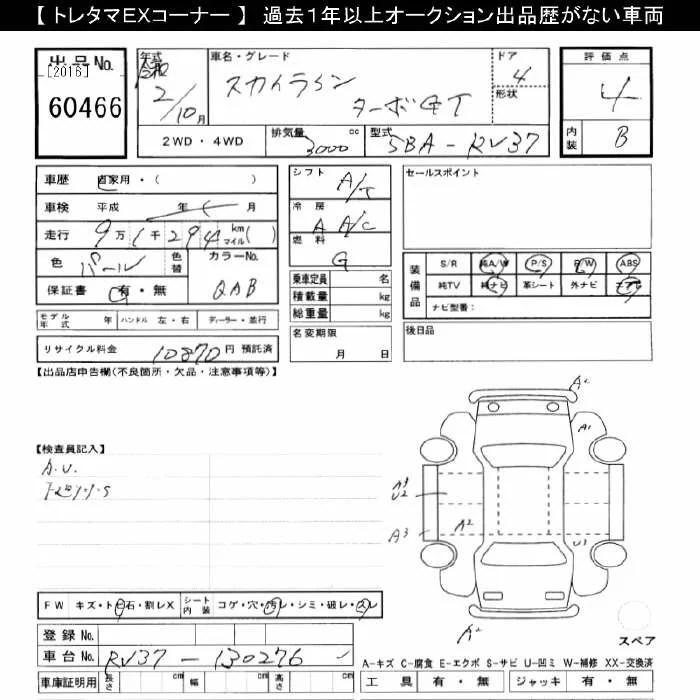 【 トレタマEXコーナー 】 過去１年以上オークション出品歴がない車両
出 品 No.
[2016]
60466
年式
2/10月
車名・グレード
スカイライン
ターボGT
ドア
4
形状
評 価 点
4
内装
B
2WD ・ 4WD
排気量
3000
cc
型式
5BA - RV37
車歴
自家用・( )
車検
平成 年 月
走行
9万1千294
km
マイル
( )
色
パール
色替
カラーNo.
QAB
保証書
有・無
モデル年式
年
ハンドル
左・右
ディーラー・並行
リサイクル料金
10870
円 預託済
シフト
A/T
冷房
A A/C
燃料
G
乗車定員
名
積載量
kg
総重量
kg
名変期限
月 日
セールスポイント
装備品
S/R
純A/W
P/S
P/W
ABS
純TV
純ナビ
革シート
外ナビ
エアB
ナビ型番:
後日品
【出品店申告欄(不良箇所・欠品・注意事項等)】
【検査員記入】
A.U.
A2
A1
A3
U2
A3
A2
U3
A2
スペア
F W
キズ・トビ石・割レX
シート内装
コゲ・穴・汚レ・シミ・破レ・スレ
登 録 No.
車 台 No.
RV37 - 130276
車庫証明用
長さ
cm
幅
cm
高さ
cm
A-キズ C-腐食 E-エクボ S-サビ U-凹ミ W-補修 XX-交換済
工 具
有 ・ 無
ジャッキ
有 ・ 無